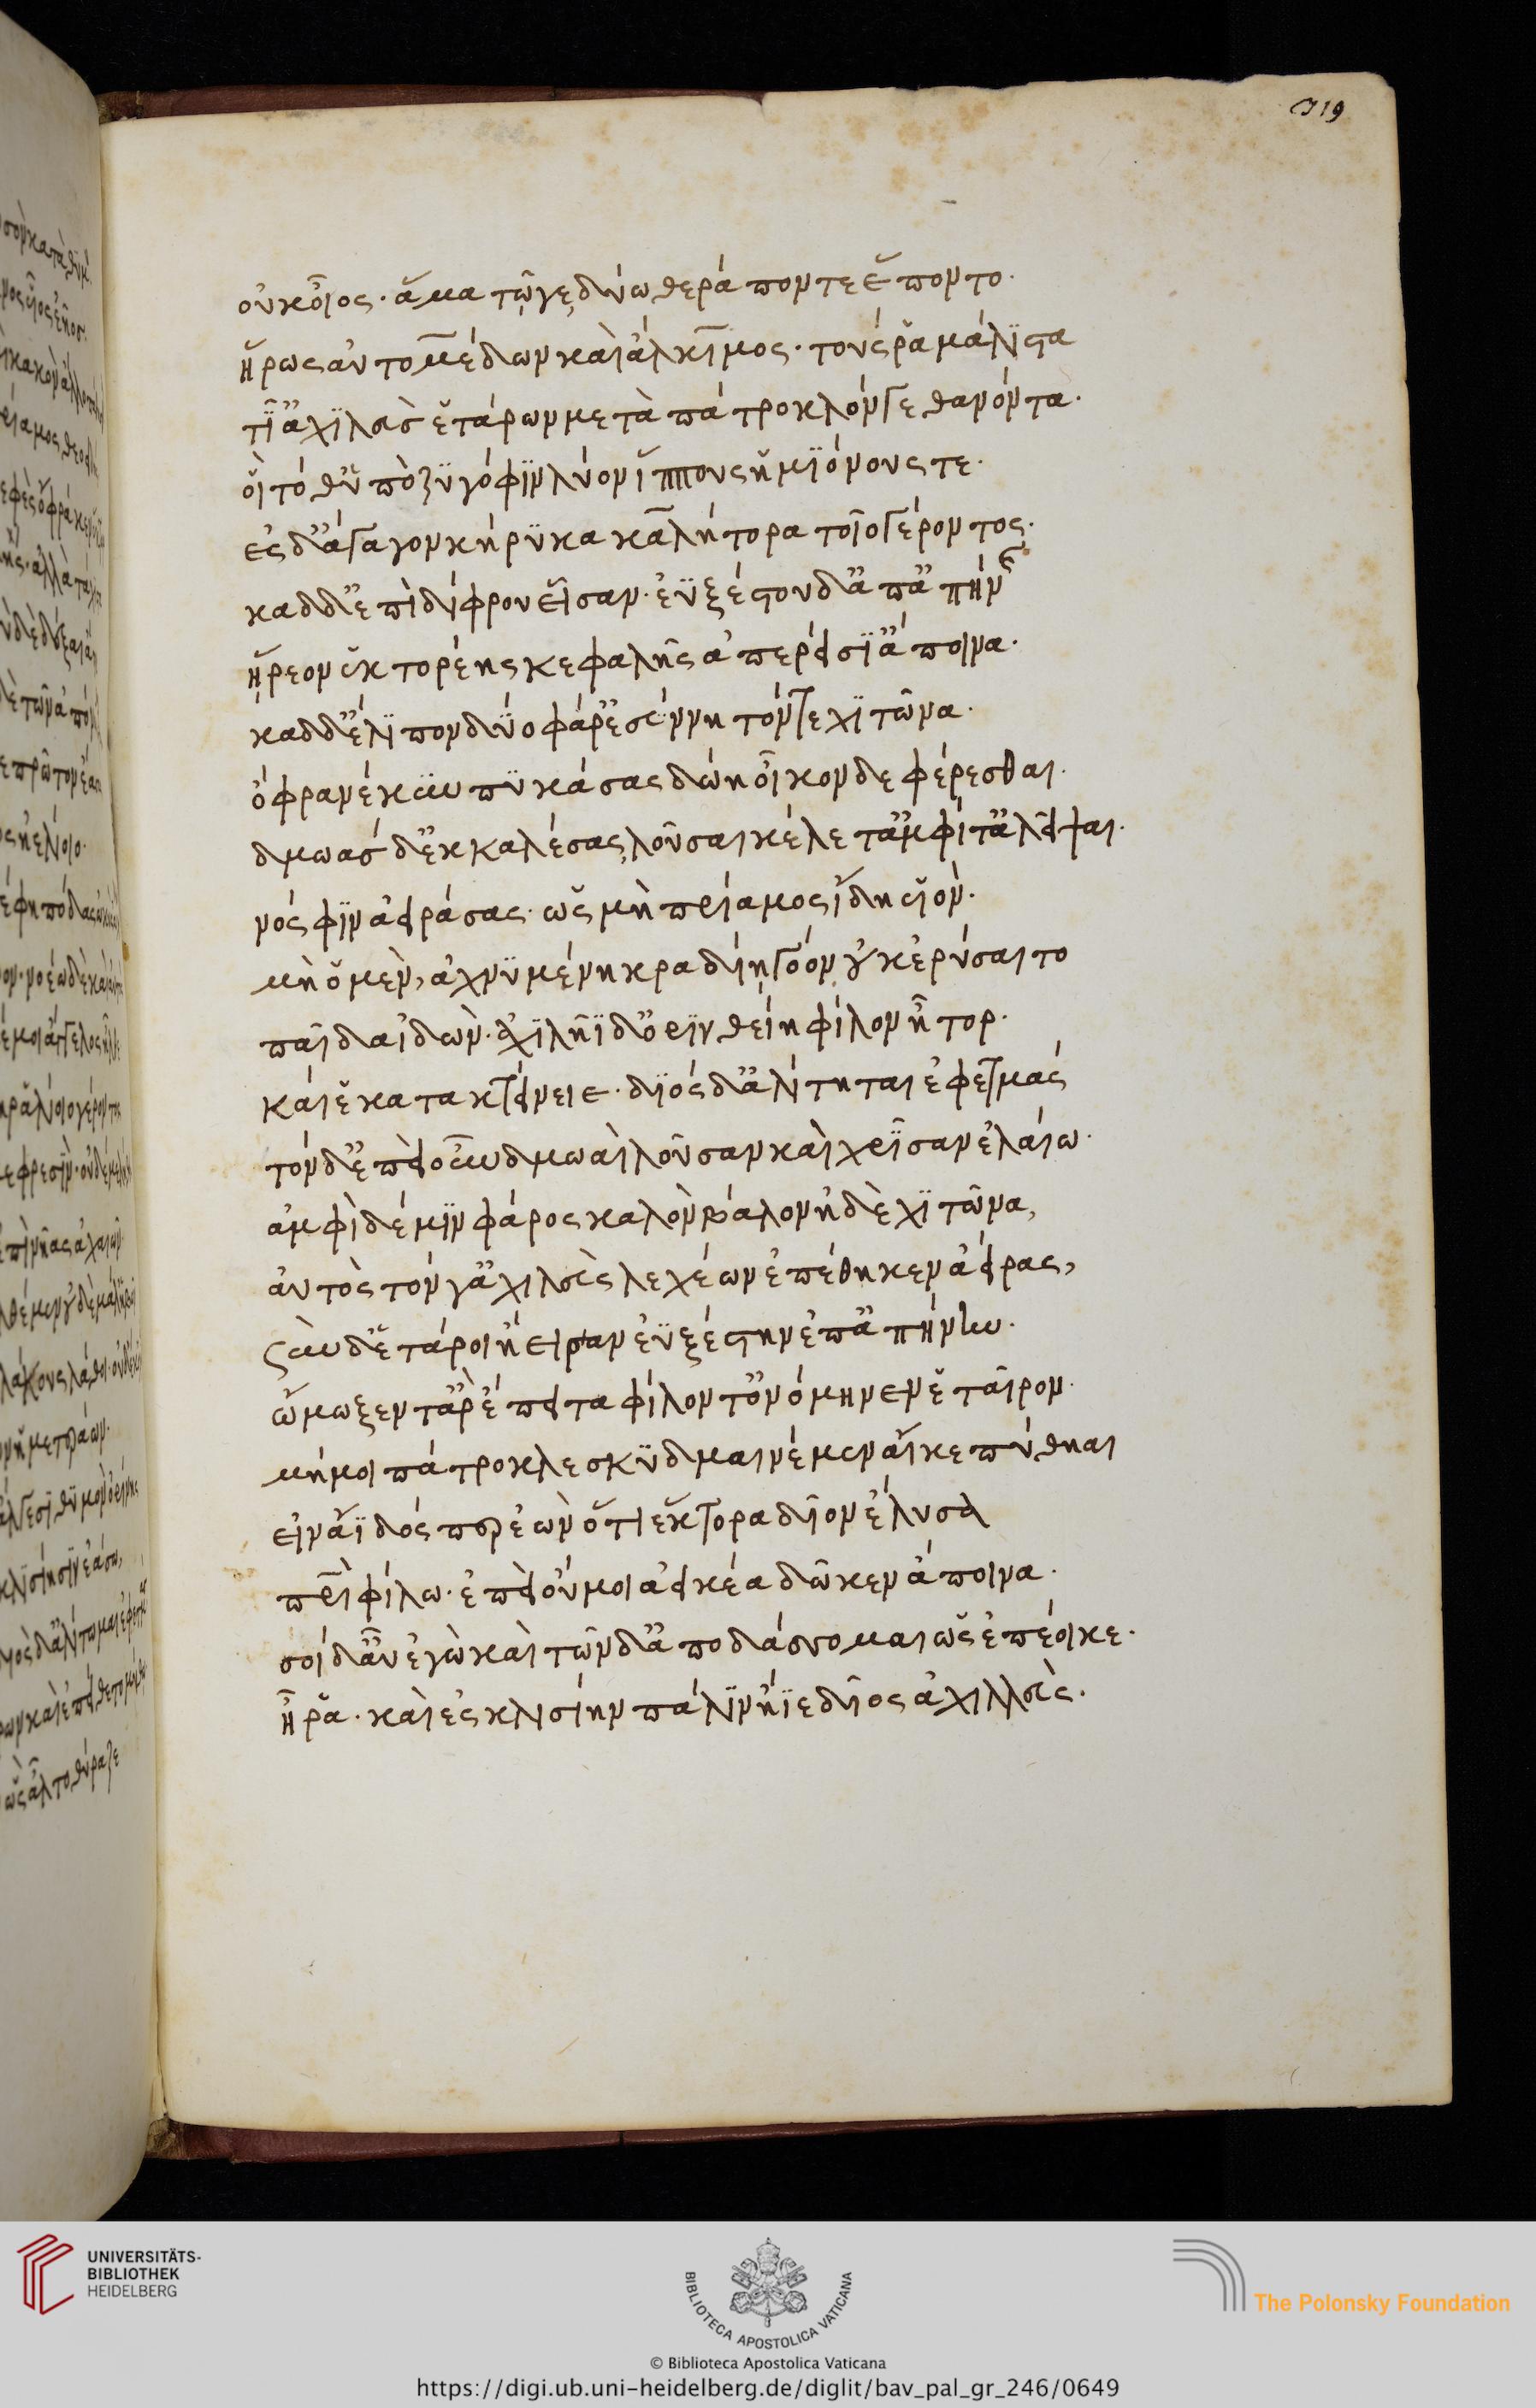 319
οὐκ οἶος· ἅμα τῷγε δύω θεράποντε ἕποντο·
ἥρως αὐτομέδων καὶ ἄλκιμος· τούς ῥα μάλιστα
τῖ ἀχιλεὺσ ἑτάρων μετὰ πάτροκλόν γε θανόντα·
οἳ τόθ' ὑπὸ ζυγόφιν λύον ἵππους ἡμιόνους τε·
ἐς δ' ἄγαγον κήρυκα καλήτορα τοῖο γέροντος·
καδδ' ἐπὶ δίφρου εἷσαν· ἐϋξέστου δ' ἀπ' ἀπήνης
ᾕρεον ἑκτορέης κεφαλῆς ἀπερείσι' ἄποινα·
καδδ' ἔλιπον δύο φάρε' ἐΰννητόν τε χιτῶνα·
ὄφρα νέκυν πυκάσας δώη οἶκον δε φέρεσθαι·
δμωάσ δ' ἐκκαλέσας, λοῦσαι κέλετ' ἀμφί τ' ἀλεῖψαι·
νόσφιν ἀείρασας· ὡς μὴ πρίαμος ἴδη υἱόν·
μὴ ὁ μὲν, ἀχνυμένη κραδίη γόον οὐκ ἐρύσαιτο
παῖδα ἰδών· ἀχιλῆϊ δ' ὀρινθείη φίλον ἦτορ·
καί ἑ κατακτείνειε· διός δ' ἀλίτηται ἐφετμάς
τόν δ' ἐπεὶ οὖν δμωαὶ λοῦσαν καὶ χρῖσαν ἐλαίω·
ἀμφὶ δέ μιν φάρος καλὸν βάλον ἠδὲ χιτῶνα,
αὐτὸς τόν γ' ἀχιλεὺς λεχέων ἐπέθηκεν ἀείρας,
σὺν δ' ἕταροι ἤειραν ἐϋξέστην ἐπ' ἀπήνην·
ᾤμωξεν τ' ἄρ' ἔπειτα φίλον τ' ὀνόμηνεν ἑταῖρον·
μή μοι πάτροκλε σκυδμαινέμεν αἴ κε πύθηαι
εἰν ἄϊδός περ ἐὼν ὅτι ἕκτορα δῖον ἔλυσα
πατρὶ φίλω· ἐπεὶ οὔ μοι ἀεικέα δῶκεν ἄποινα·
σοί δ' αὖ ἐγὼ καὶ τῶνδ' ἀποδάσομαι ὡς ἐπέοικε·
ἦ ῥα· καὶ ἐς κλισίην πάλιν ἤϊε δῖος ἀχιλλεὺς·
UNIVERSITÄTS-
BIBLIOTHEK
HEIDELBERG
BIBLIOTECA APOSTOLICA VATICANA
The Polonsky Foundation
© Biblioteca Apostolica Vaticana
https://digi.ub.uni-heidelberg.de/diglit/bav_pal_gr_246/0649